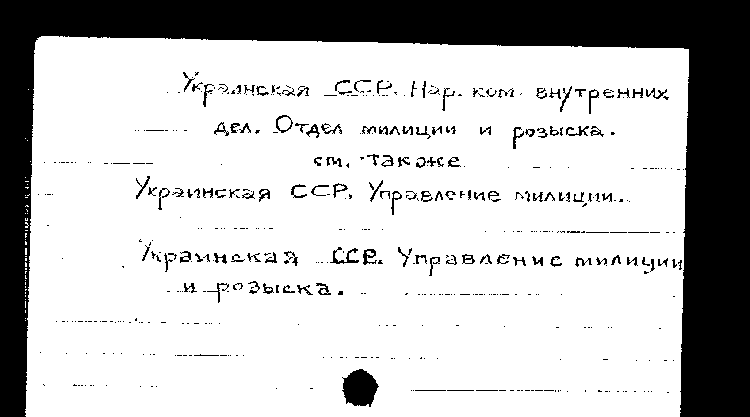 Украинская ССР. Нар. ком. внутренних
дел. Отдел милиции и розыска.
см. также
Украинская ССР. Управление милиции.
Украинская ССР. Управление милиции
и розыска.